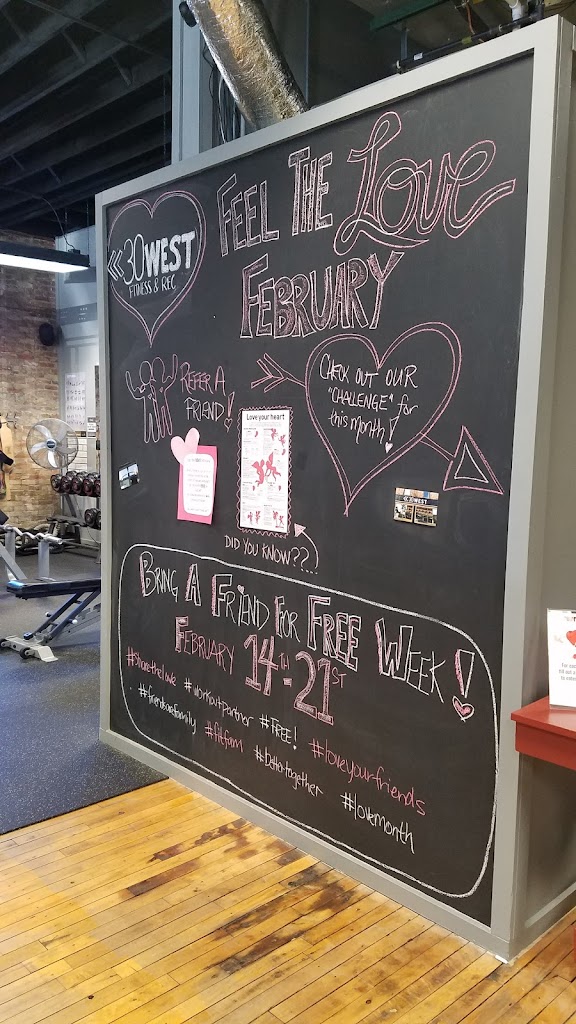 FEEL THE Love
FEBRUARY
30WEST
FITNESS & REC
REFER A
FRIEND!
Love your heart
CHECK OUT OUR
"CHALLENGE" for
this month!
DID YOU KNOW??
BRING A FRIEND FOR FREE WEEK!
FEBRUARY 14TH-21ST
#sharethelove #workoutpartner #FREE! #loveyourfriends
#friendsarefamily #fitfam #bettertogether #lovemonth